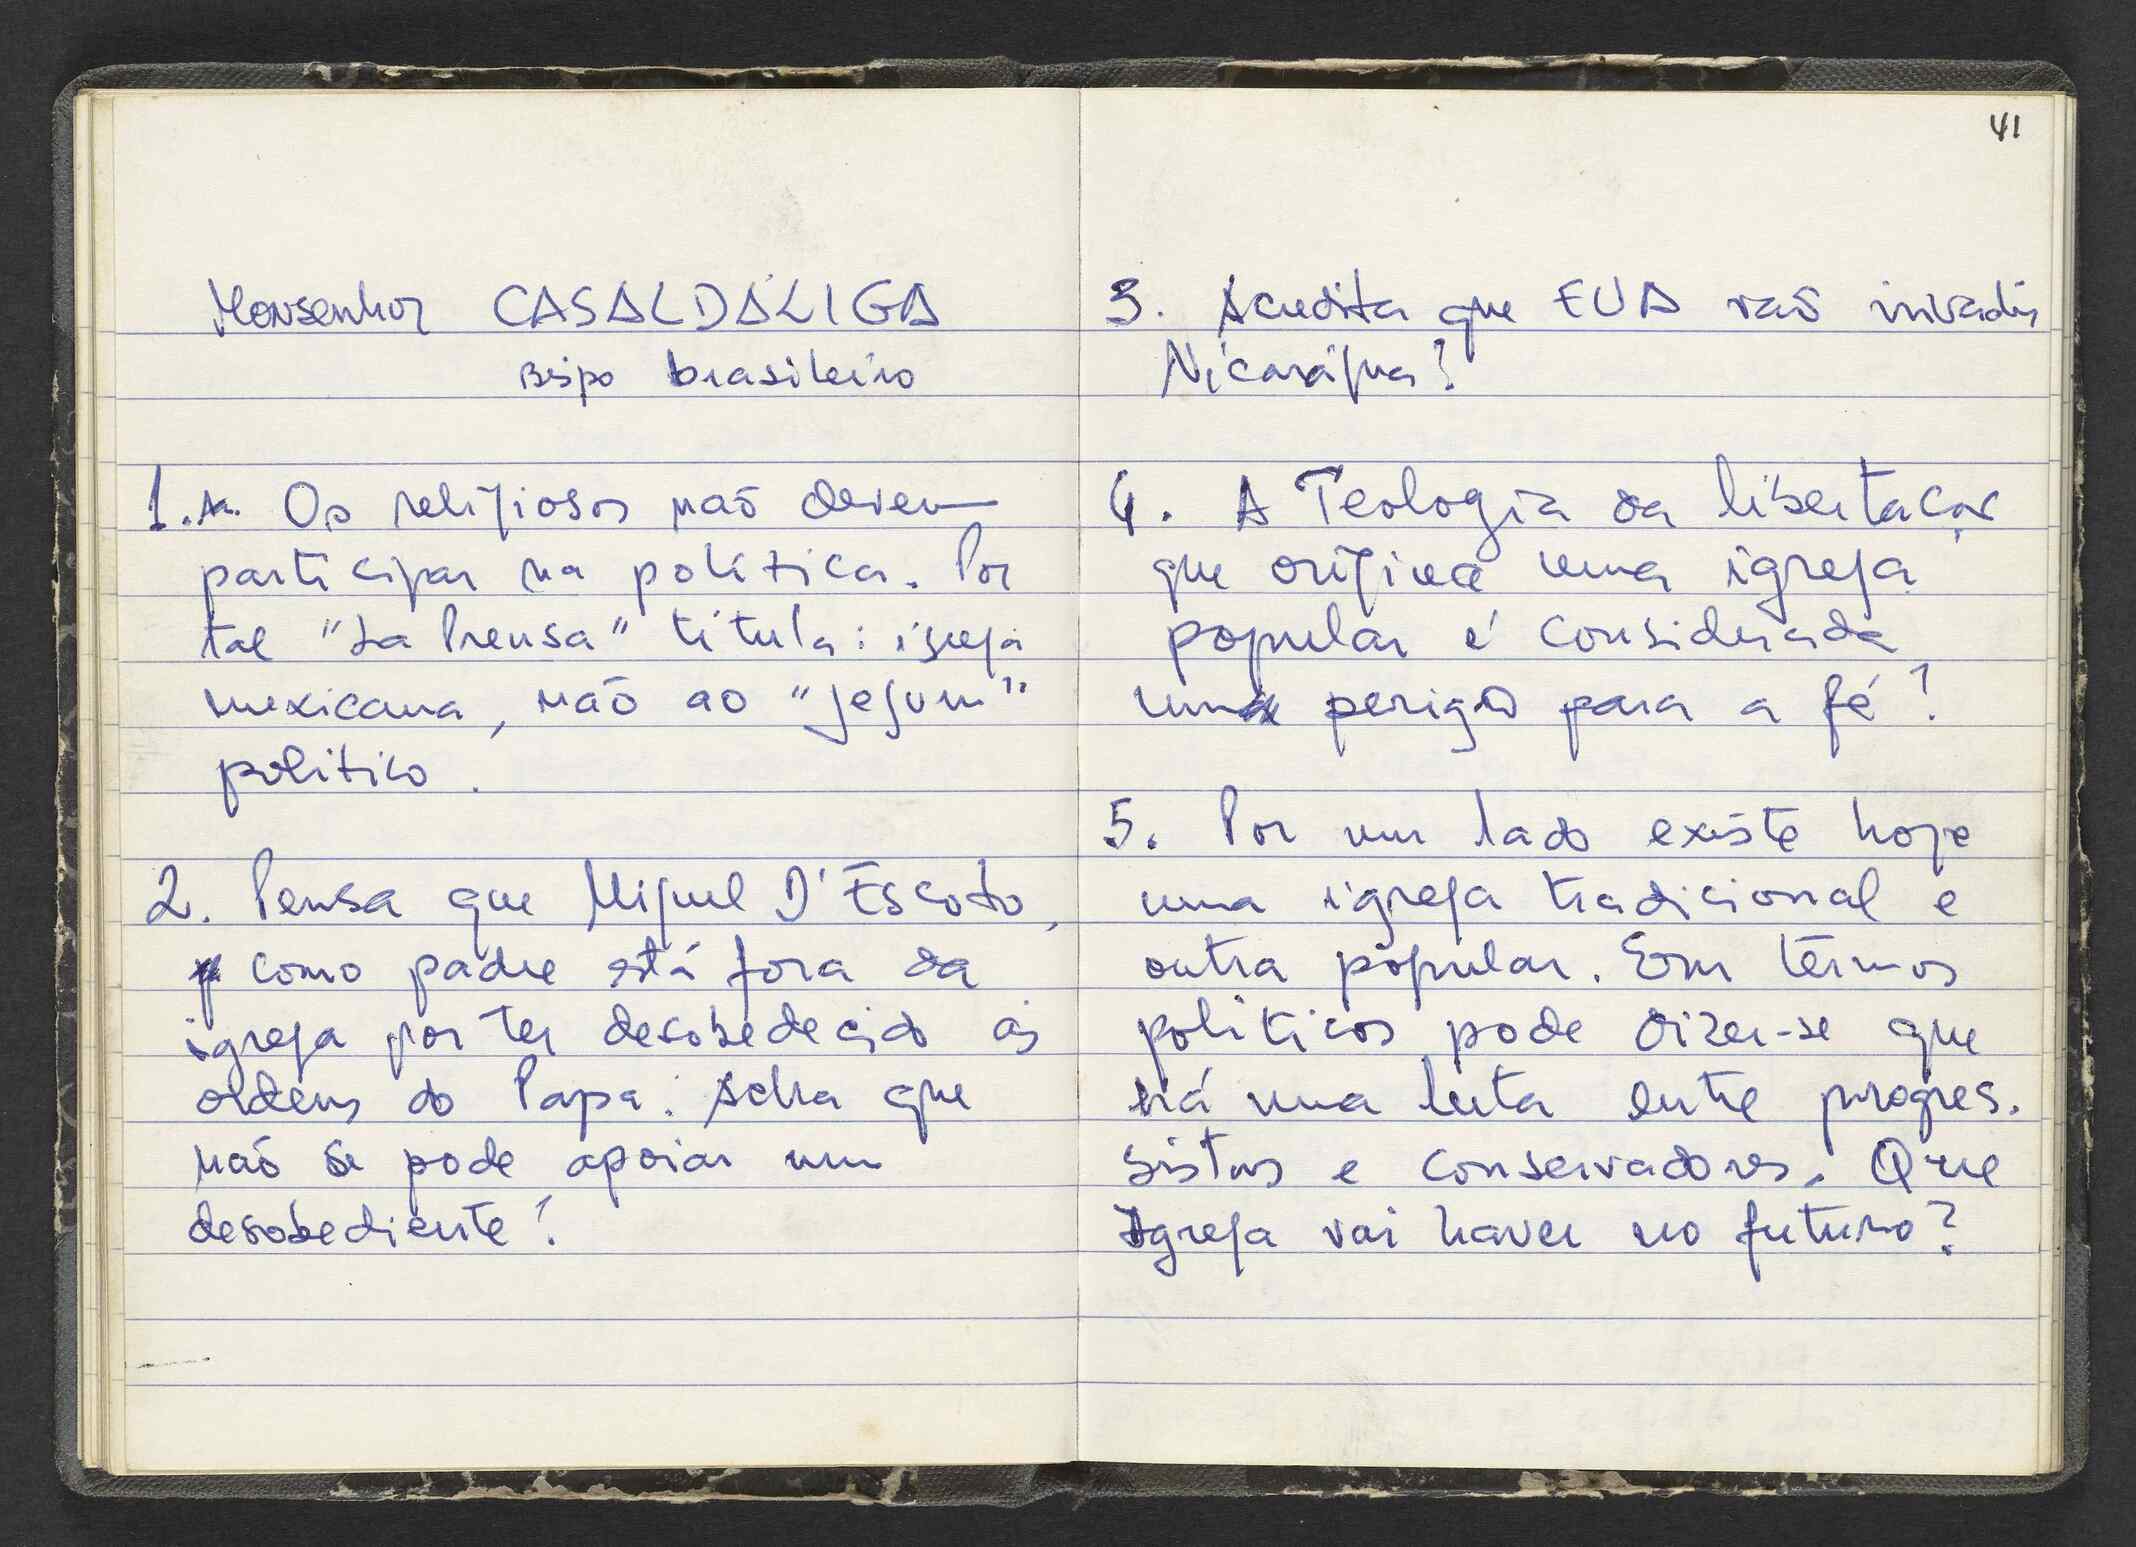 Monsenhor CASALDÁLIGA
Bispo brasileiro
1. Os religiosos não devem
participar na política. Por
tal "La Prensa" titula: igreja
mexicana, não ao "jejum"
politico.
2. Pensa que Miguel D'Escoto,
como padre está fora da
igreja por ter desobedecido às
ordens do Papa. Acha que
não se pode apoiar um
desobediente?
41
3. Acredita que EUA vão invadir
Nicarágua?
4. A Teologia da libertação
que origina uma igreja
popular é considerada
um perigo para a fé?
5. Por um lado existe hoje
uma igreja tradicional e
outra popular. Em termos
politicos pode dizer-se que
há uma luta entre progres.
sistas e conservadores. Que
Igreja vai haver no futuro?